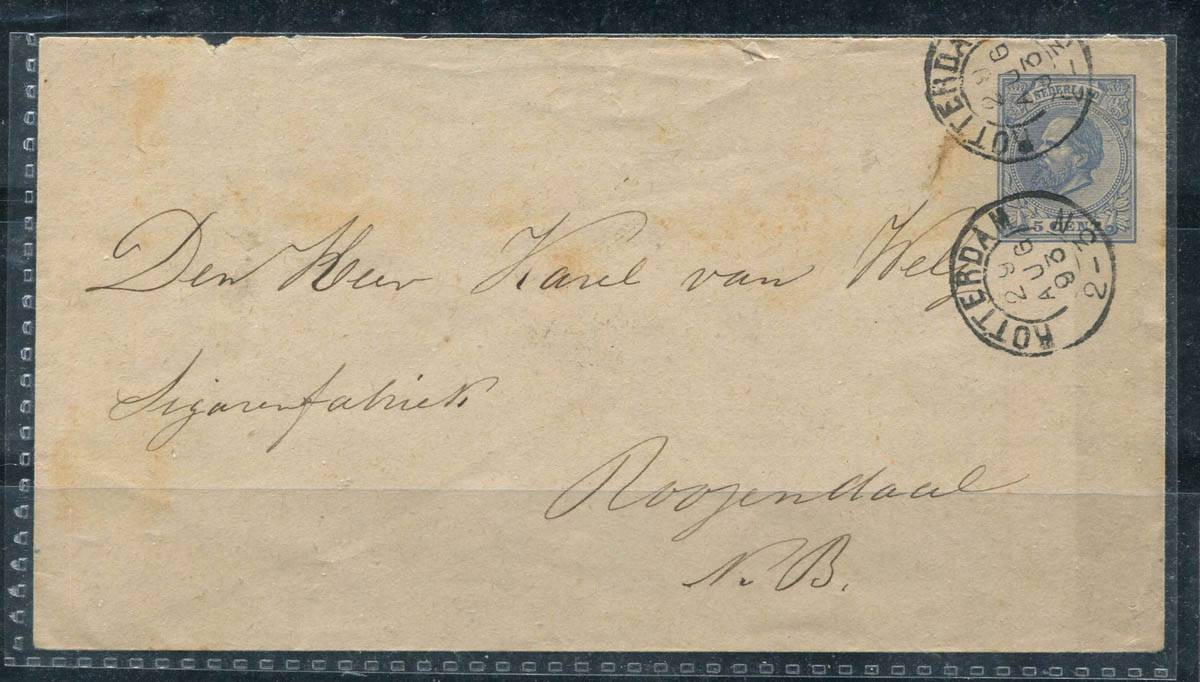 ROTTERDAM
29
AUG
93
2-3
NEDERLAND
5 CENT
ROTTERDAM
29
AUG
93
2-3 N
Den Heer Karel van Wely
Sigarenfabriek
Roozendaal
N. B.